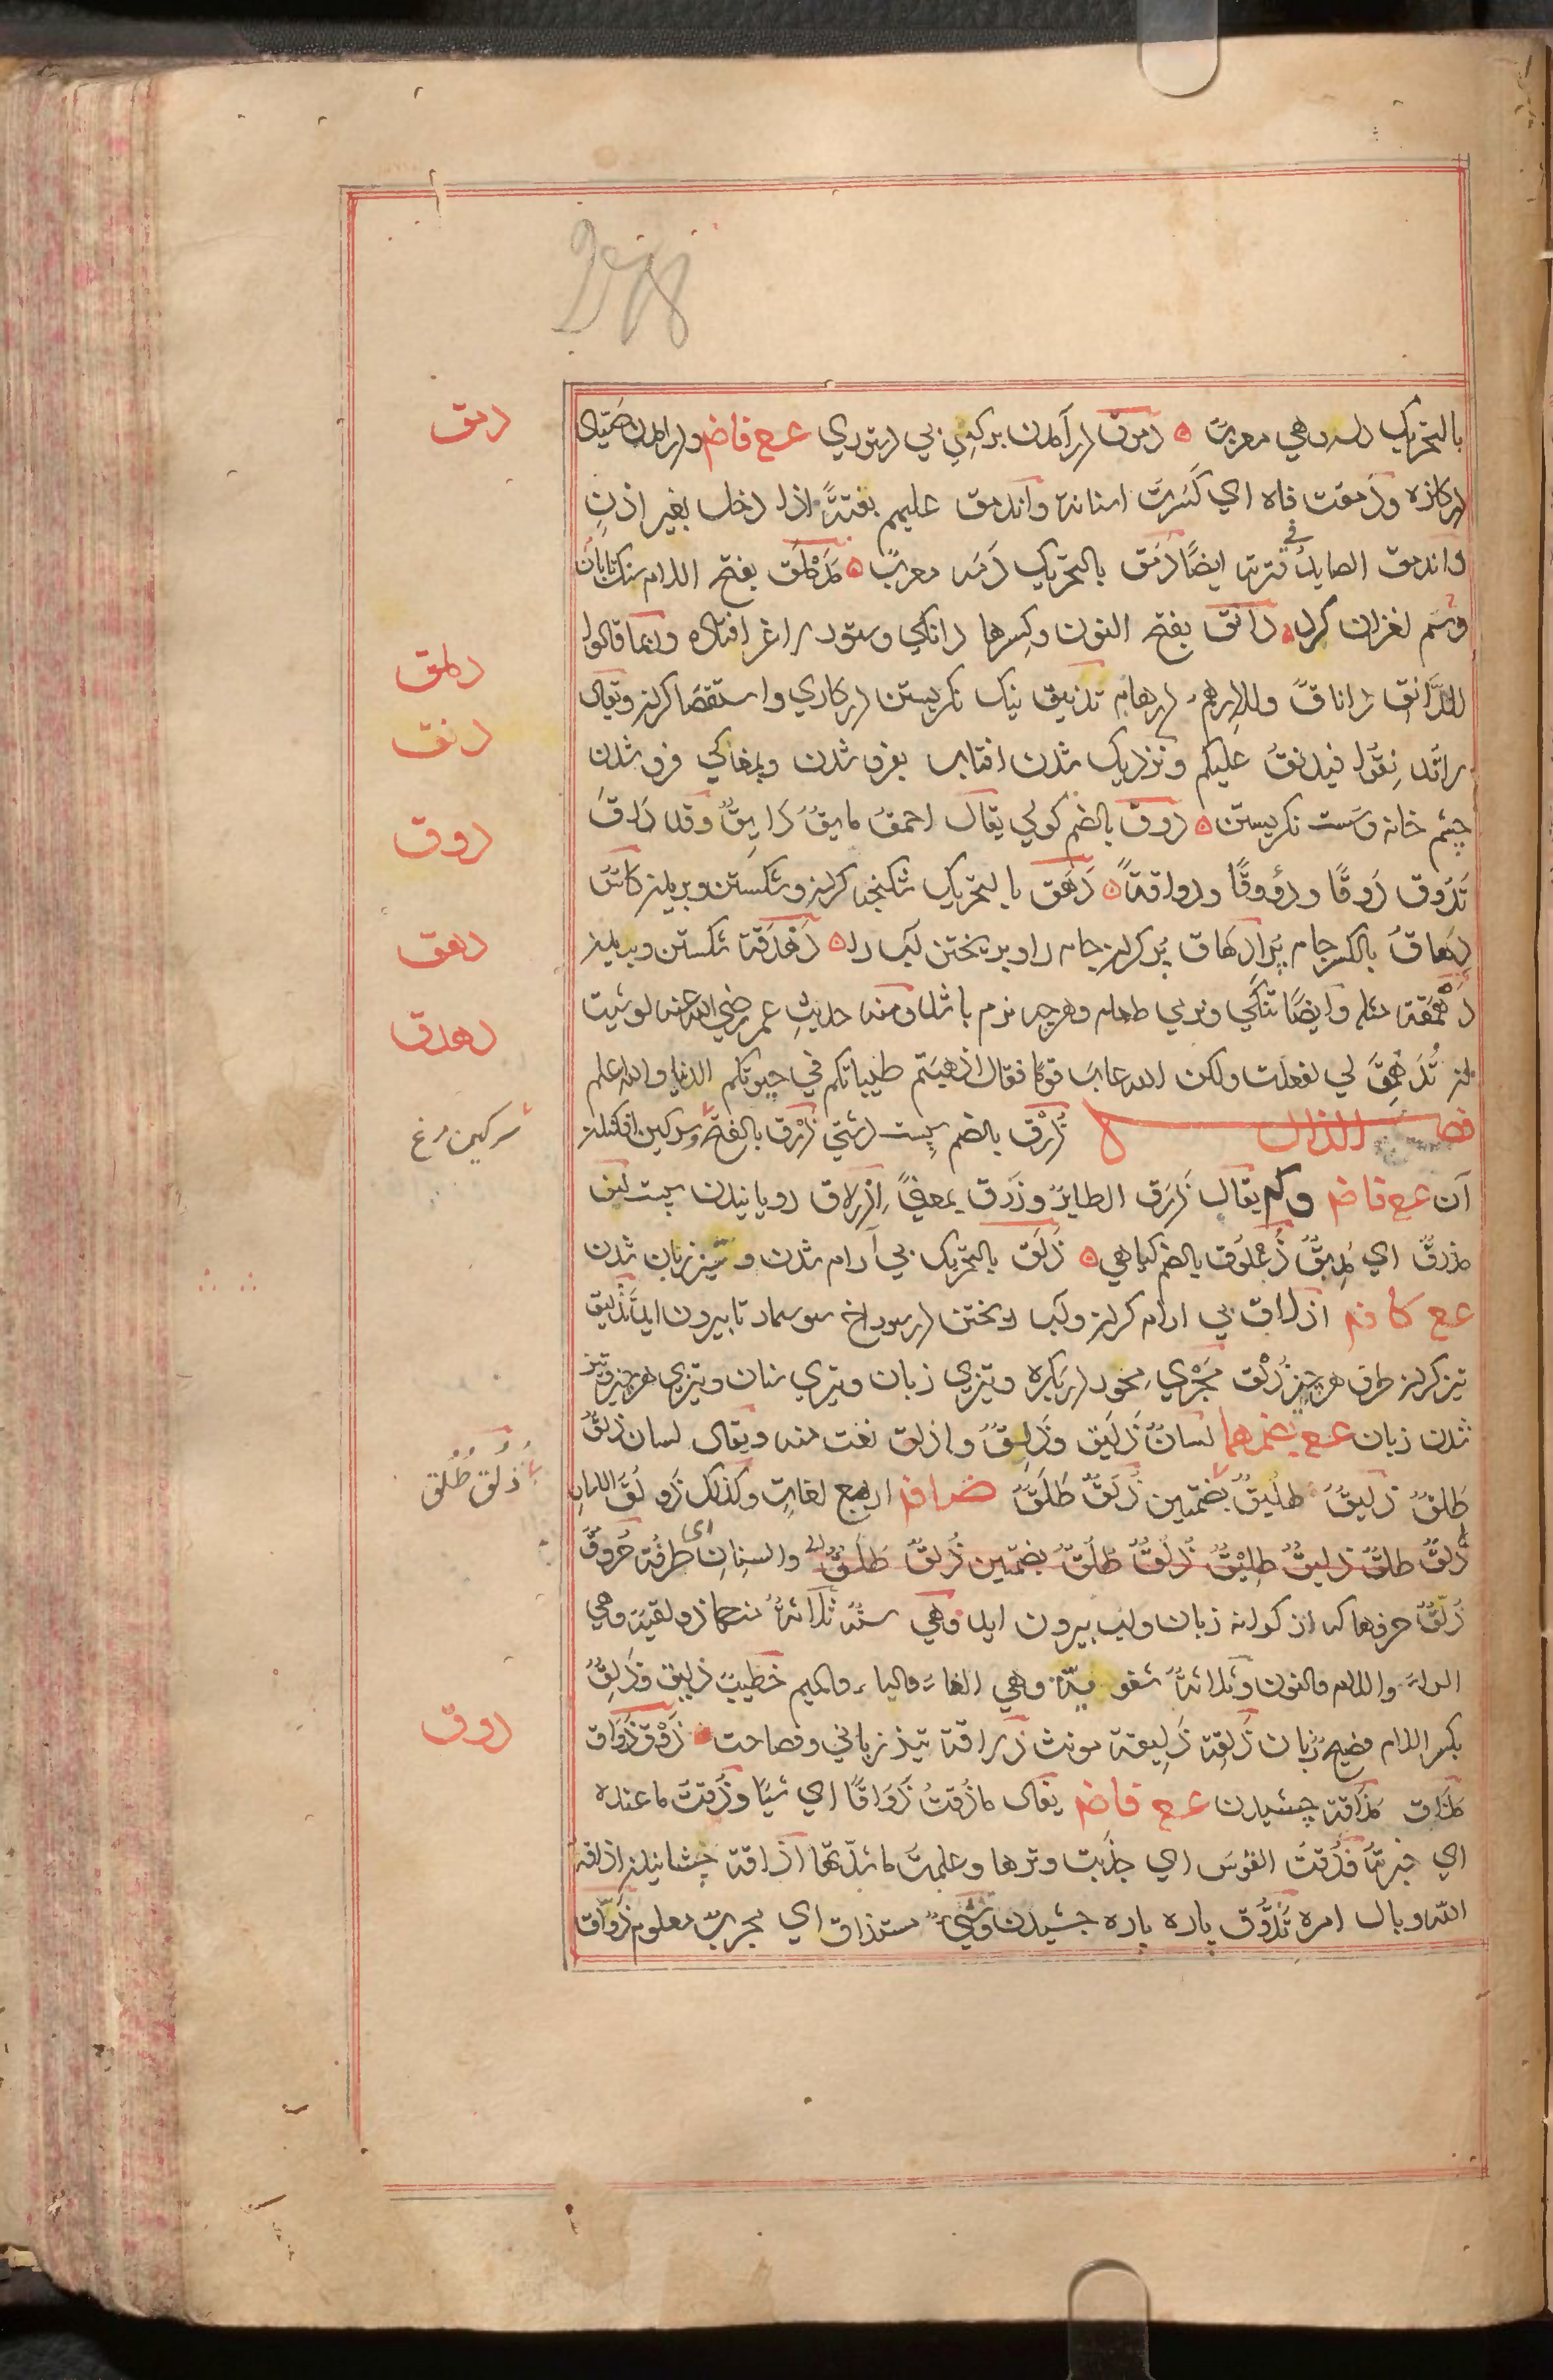 بالتحریک دله وهي معربت دموق درآمدن بر کسي بي دستوري ع ع فاض ودرآمدن صیاد
درکازه ودمقت فاه اي کسرت اسنانه واندمق علیهم بغتةً اذا دخل بغیر اذنٍ
واندمق الصاید في قترته ایضًا دَمَق بالتحریک دَمَه معربٌ مُدَمْلَق بفتح اللام سنک تابان
وسم لغزان کرد دانق بفتح النون وکسرها دانکي وستور لاغر افتاده وانما قالوا
للدَّانق داناقٌ وللدرهم درهام تدنیق نیک نکریستن درکاري واستقصا کردن ویقال
لا تُدنِقوا فیدنقُ علیکم ونزدیک شدن افتاب بفرو شدن وبمغاکي فرو شدن
چشم خانه وسست نکریستن دوق بالضم کولي یقال احمقُ مایقٌ دایِقٌ وقد دَاقَ
یَدُوق دَوقًا ودؤوقًا ودواقةً دَهَق بالتحریک شکنجه کردن وشکستن وبریدن کاسٌ
دِهاقٌ بالکسر جام پُر اِدهاق پُر کردن جام را وبریختن آب را دَهْدَقَة شکستن وبریدن
دَهْمَقَة مثله وایضًا تنکي ونرمي طعام وهرچه نرم باشد ومنه حدیث عمر رضي الله عنه لو شیت
ان تُدَهْمَقَ لي لفعلت ولکن الله عاب قومًا فقال اذهبتم طیباتکم في حیوتکم الدنیا والله اعلم
فصل الذال ذُرَق بالضم سپست دشتي ذَرْق بالفتح وسرکین افکندن
آن ع ع فاض وکم یقال ذَرَق الطایرُ وزَرَق بمعنیً اِذراق رویانیدن سپست لبن
مذرقٌ اي مذیقٌ ذُعلُوق بالضم کیاهي ذَلَق بالتحریک بي آرام شدن وتیز زبان شدن
ع ع کا ض اذلاق بي ارام کردن وآب ریختن درسوراخ سوسمار تا بیرون اید تَذْلیق
تیز کردن طرف هر چیز ذَلْق مَجْرَي مِحْوَر دربکره وتیزي زبان وتیزي سنان وتیزي هر چیز وتیز
شدن زبان ع ع بضمهما لسانٌ ذَلیق وذَلِقٌ واذلق نعت منه ویقال لسان ذَلْقٌ
طَلْقٌ ذَلیقٌ طلیقٌ بضمتین ذُلَقٌ طُلَقٌ ض ا ض اربع لغاتٍ وکذلک ذَولَقُ اللسان
ذَلْقٌ طلقٌ ذلیقٌ طلیقٌ ذُلُقٌ طُلُقٌ بضمتین ذُلَقٌ طُلَقٌ والسنانِ ای طرفُهُ حُروفٌ
ذُلْقٌ حرفها که از کرانه زبان ولب بیرون اید وهي ستة ثلاثةٌ منها ذولقیة وهي
الراء واللام والنون وثلاثةٌ شفویة وهي الفاء والباء والمیم خطیبٌ ذلیق وذَلِقٌ
بکسر اللام فصیح زبان ذَلِقة ذَلیقة مونث ذَلاقة تیز زباني وفصاحت ذَوْق ذَوَاق
مَذاق مَذاقة چشیدن ع ع فاض یقال ما ذُقتُ ذَوَاقًا اي شیًا وذُقتُ ما عنده
اي خبرته فذُقتُ القوسَ اي جذبت وترها وعلمتُ ما شدّتها اذاقة چشانیدن اذاقه
الله وبال امره تَذَوُّق پاره پاره جشیدن وشيءٌ مستذاق اي مجربٌ معلوم ذَوّاق
دمق
دملق
دنق
دوق
دهق
دهدق
سرکین مرغ
ذُلُق طُلُق
ذوق